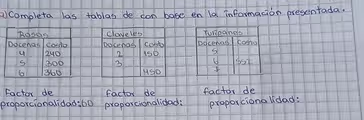 a) Completa las tablas de con base en la información presentada.
Rosas
Docenas Costo
4 240
5 300
6 360
Factor de
proporcionalidad: 60
Claveles
Docenas Costo
2 150
3
450
Factor de
proporcionalidad:
Tulipanes
Docenas Costo
5
6 552
7
Factor de
proporcionalidad: